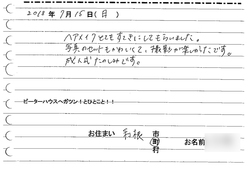 2018年9月15日(月)
ヘアメイクとてもすてきにしてもらいました。
写真のセットもかわいくて、撮影が楽しかったです。
成人式たのしみです。
ピーターハウスへガツン!とひとこと!!
お住まい 市・町・村 お名前